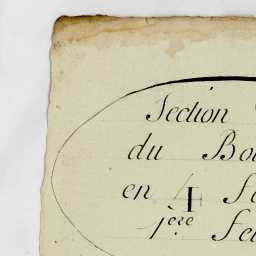 Section
du Bou
en 4 fe
1ère feu